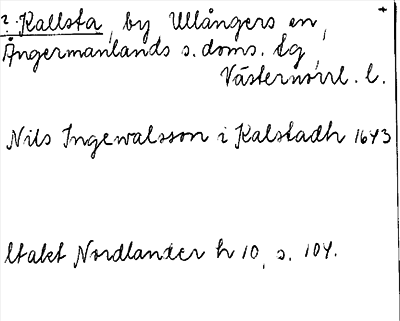 ? Kallsta, by Ullångers sn, +
Ångermanlands s. doms. tg,
Västernorrl. l.
Nils Ingewalsson i Kalstadh 1643
Utakt Nordlander h 10, s. 104.